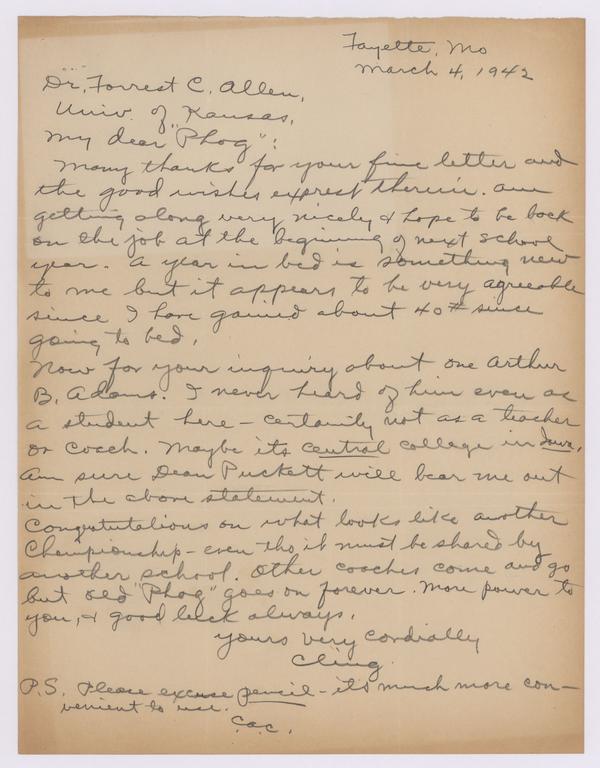 Fayette, Mo
March 4, 1942
Dr. Forrest C. Allen,
Univ. of Kansas,
My dear "Phog":
Many thanks for your fine letter and
the good wishes exprest therein. Am
getting along very nicely & hope to be back
on the job at the begining of next school
year. A year in bed is something new
to me but it appears to be very agreeable
since I have gained about 40# since
going to bed.
Now for your inquiry about one Arthur
B. Adams. I never heard of him even as
a student here - certainly not as a teacher
or coach. Maybe its Central College in Iowa.
Am sure Dean Puckett will bear me out
in the above statement.
Congratulations on what looks like another
Championship - even tho it must be shared by
another school. Other coaches come and go
but old "Phog" goes on forever. More power to
you, & good luck always.
Yours very cordially
Cling.
P.S. Please excuse pencil - its much more con-
venient to use.
C.O.C.